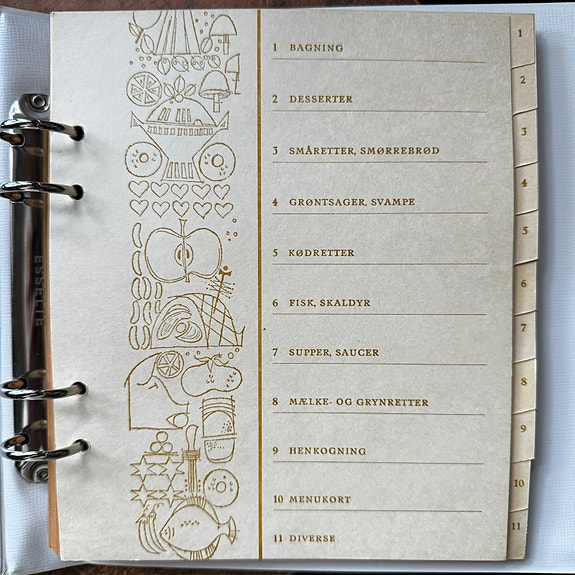 1 BAGNING
2 DESSERTER
3 SMÅRETTER, SMØRREBRØD
4 GRØNTSAGER, SVAMPE
5 KØDRETTER
6 FISK, SKALDYR
7 SUPPER, SAUCER
8 MÆLKE- OG GRYNRETTER
9 HENKOGNING
10 MENUKORT
11 DIVERSE
1
2
3
4
5
6
7
8
9
10
11
ESSELTE